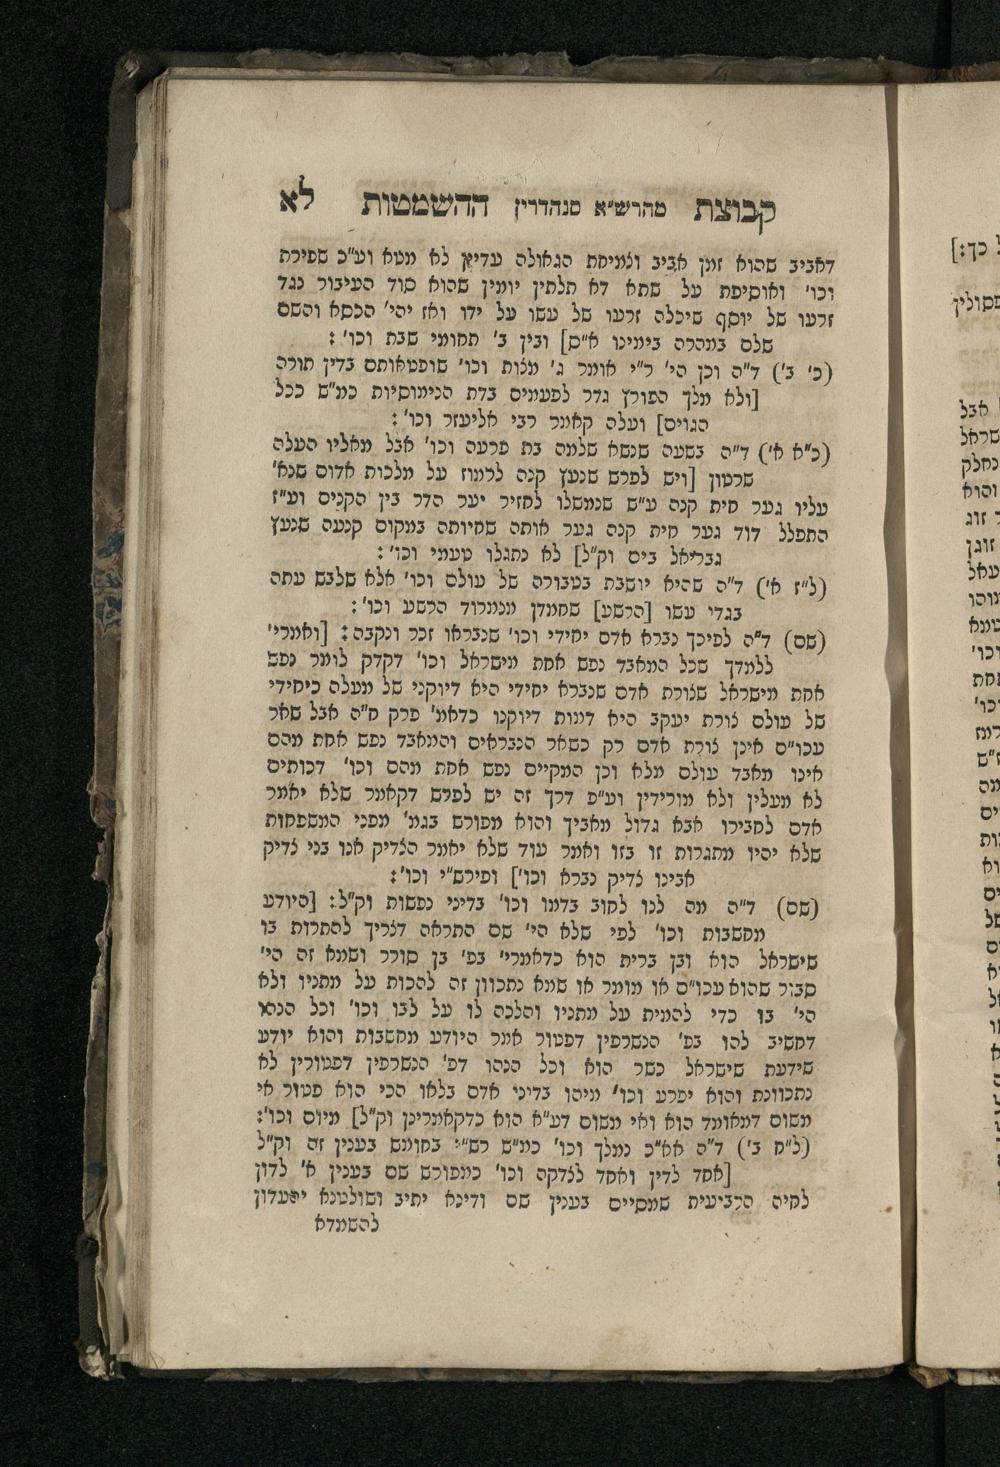 קבוצת מהרש״א סנהדרין ההשמטות לא
דאביב שהוא זמן אביב ולניסת הגאולה עדיין לא מטא וע״כ שפירת
וכו׳ ואוסיפת על שתא דא תלתין יומין שהוא סוד העיבור נגד
זרעו של יוסף שיכלה זרעו של עשו על ידו ואז יהי׳ הכסא והשם
שלם במהרה בימינו א״ס] ובין ב׳ תחומי שבת וכו׳ :
(כ׳ ב׳) ד״ה וכן הי׳ ר״י אומר ג׳ מצות וכו׳ שופטאותם בדין תורה
[ולא מלך הפורץ גדר לפעמים בדת הנימוסיות כמ״ש ככל
הגוים] ועלה קאמר רבי אליעזר וכו׳ :
(כ״א א׳) ד״ה בשעה שנשא שלמה בת פרעה וכו׳ אבל מאליו העלה
שרטון [ויש לפרש שנעץ קנה לרמוז על מלכות אדום שנא׳
עליו גער חית קנה ע״ש שנמשלו לחזיר יער הדר בין הקנים וע״ז
התפלל דוד גער חית קנה גער אותה שחיותה במקום קנעה שנעץ
גבריאל בים וק״ל] לא נתגלו טעמי וכו׳ :
(ל״ז א׳) ד״ה שהיא יושבת בטבורה של עולם וכו׳ אלא שלבש עתה
בגדי עשו [הרשע] שחמדן מנמרוד הרשע וכו׳ :
(שם) ד״ה לפיכך נברא אדם יחידי וכו׳ שנבראו זכר ונקבה : [ואמרי׳
ללמדך שכל המאבד נפש אחת מישראל וכו׳ דקדק לומר נפש
אחת מישראל שצורת אדם שנברא יחידי היא דיוקני של מעלה כיחידי
של עולם צורת יעקב היא דמות דיוקנו כדאמ׳ פרק ח״ה אבל שאר
עכו״ם אינן צורת אדם רק כשאר הנבראים והמאבד נפש אחת מהם
אינו מאבד עולם מלא וכן המקיים נפש אחת מהם וכו׳ דכותים
לא מעלין ולא מורידין וע״פ דרך זה יש לפרש דקאמר שלא יאמר
אדם לחבירו אבא גדול מאביך והוא מפורש בגמ׳ מפני המשפחות
שלא יהיו מתגרות זו בזו ואמר עוד שלא יאמר הצדיק אנו בני צדיק
אבינו צדיק נברא וכו׳] ופירש״י וכו׳ :
(שם) ד״ה מה לנו לחוב בדמו וכו׳ בדיני נפשות וק״ל : [היודע
מחשבות וכו׳ לפי שלא הי׳ שם התראה דצריך להתרות בו
שישראל הוא ובן ברית הוא כדאמרי׳ בפ׳ בן סורר ושמא זה הי׳
סבור שהוא עכו״ם או מומר או שמא נתכוון זה להכות על מתניו ולא
הי׳ בו כדי להמית על מתניו והלכה לו על לבו וכו׳ וכל הנהו
דחשיב להו בפ׳ הנשרפין דפטור אמר היודע מחשבות והוא יודע
שידעת שישראל כשר הוא וכל הנהו דפ׳ הנשרפין דפטורין לא
נתכוונת והוא יפרע וכו׳ מיהו בדיני אדם בלאו הכי הוא פטור אי
משום דמאומד הוא ואי משום דע״א הוא כדקאמרינן וק״ל] מיוס וכו׳ :
(ל״ח ב׳) ד״ה אח״כ נמלך וכו׳ כמ״ש רש״י בחומש בענין זה וק״ל
[אחד לדין ואחד לצדקה וכו׳ כמפורש שם בענין א׳ לדון
לחיה הרביעית שמסיים בענין שם ודינא יתיב ושולטנא יהעדון
להשמדא